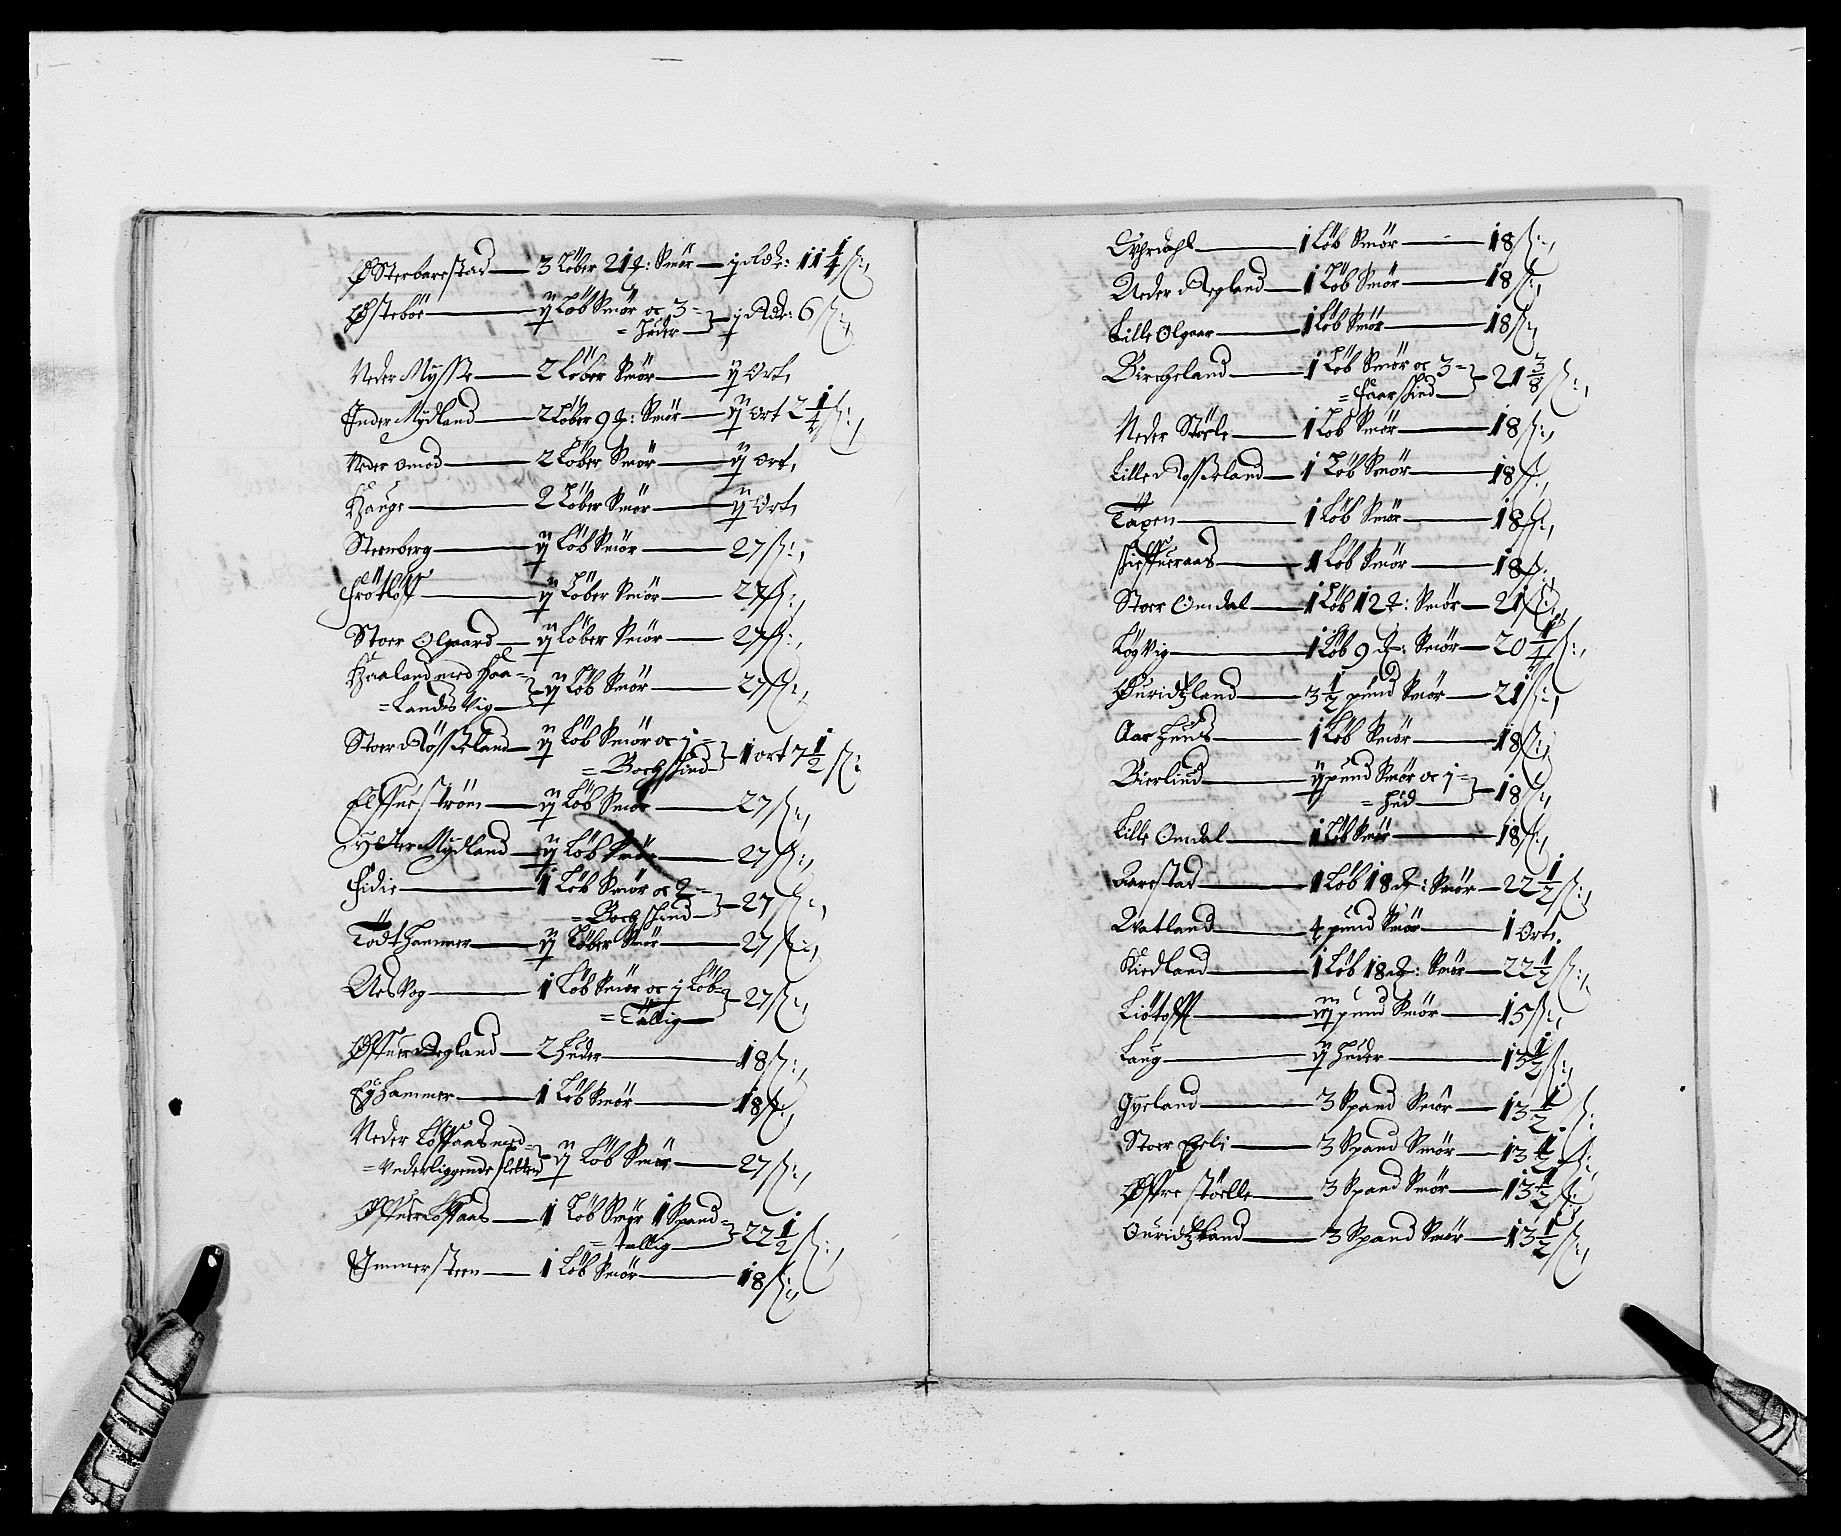 Østerbarestad — 3 Løber 21 ₰: Smør — j Rdr: 11 1/4 ß:,
Østebøe — ij Løb Smør oc 3 =
= Huder — j Rdr: 6 ß:,
Neder Mysse — 2 Løber Smør — ij Ort,
Inder Mydland — 2 Løber 9 ₰: Smør — ij Ort 2 1/4 ß:,
Neder Omod — 2 Løber Smør — ij Ort,
Hauge — 2 Løber Smør — ij Ort,
Steenberg — ij Løb Smør — 27 ß:,
Frøtløff — ij Løber Smør — 27 ß:,
Stoer Olgaard — ij Løber Smør — 27 ß:,
Haaland med Haa =
= Lands Vig — ij Løb Smør — 27 ß:,
Stoer Røsseland — ij Løb Smør oc j =
= Bochskind — 1 ort 7 1/2 ß:
Elffuestrøm — ij Løb Smør — 27 ß:,
Ytter Mydland — ij Løb Smør — 27 ß:,
Fidie — 1 Løb Smør oc 2 =
= Bochskind — 27 ß:,
Tødthammer — ij Løber Smør — 27 ß:,
Aas Vog — 1 Løb Smør oc j Løb =
= Tallig — 27 ß:,
Øffuer Regland — 2 Huder — 18 ß:,
Eyhammer — 1 Løb Smør — 18 ß:,
Neder Løffaas med =
= Vnderliggende sletten — ij Løb Smør — 27 ß:,
Øffuer Løffaas — 1 Løb Smør 1 Spand =
= tallig — 22 1/2 ß:,
Immersteen — 1 Løb Smør — 18 ß:,
Offrdahl — 1 Løb Smør — 18 ß:,
Neder Regland — 1 Løb Smør — 18 ß:,
Lille Olgaar — 1 Løb Smør — 18 ß:,
Bircheland — 1 Løb Smør oc 3 =
= Faarskind — 21 3/8 ß:,
Neder Støele — 1 Løb Smør — 18 ß:,
Lille Rosseland — 1 Løb Smør — 18 ß:,
— 1 Løb Smør — 18 ß:,
Skieffueraas — 1 Løb Smør — 18 ß:,
Stoer Omdal — 1 Løb 12 ₰: Smør — 21 ß:,
Løgvig — 1 Løb 9 ₰: Smør — 20 1/4 ß:,
Øuridtzland — 3 1/2 pund Smør — 21 ß:,
Aarhuus — 1 Løb Smør — 18 ß:,
Bierlind — ij pund Smør oc j =
= Hud — 18 ß:,
Lille Omdal — 1 Løb Smør — 18 ß:,
Aarestad — 1 Løb 18 ₰: Smør — 22 1/2 ß:,
Watland — 4 pund Smør — 1 Ort,
Kiedland — 1 Løb 18 ₰: Smør — 22 1/2 ß:,
Liøtofft — iij pund Smør — 15 ß:,
Laug — ij Huder — 13 1/2 ß:,
Gyeland — 3 Spand Smør — 13 1/2 ß:
Stoer Egeli — 3 Spand Smør — 13 1/2 ß:
Øffre støelle — 3 Spand Smør — 13 1/2 ß:,
Ouridtzland — 3 Spand Smør — 13 1/2 ß:,